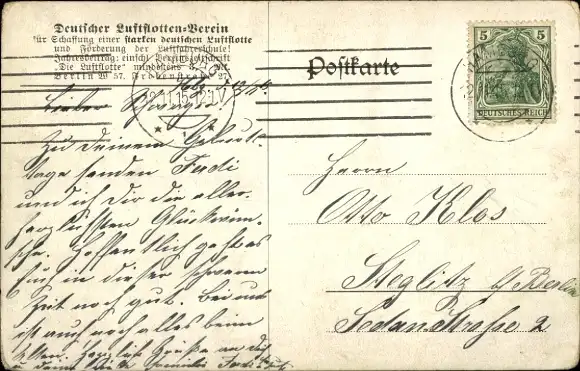 Deutscher Luftflotten-Verein
für Schaffung einer starken deutschen Luftflotte
und Förderung der Luftfahrerschule!
Jahresbeitrag: einschl. Vereinszeitschrift
„Die Luftflotte“ mindestens
Berlin W 57, Frobenstraße 27
Postkarte
5 5
DEUTSCHES REICH
Lieber
Zu Deinem Geburts-
tage senden Ferdi
und ich dir die aller-
herzlichsten Glückwün-
sche. Hoffentlich geht es
in dieser schweren
Zeit noch gut. Bei uns
ist auch noch alles beim
alten. Herzliche Grüße an dich
u. deine
Herrn
Otto Klos
Steglitz b/ Berlin
Sedanstrasse 2